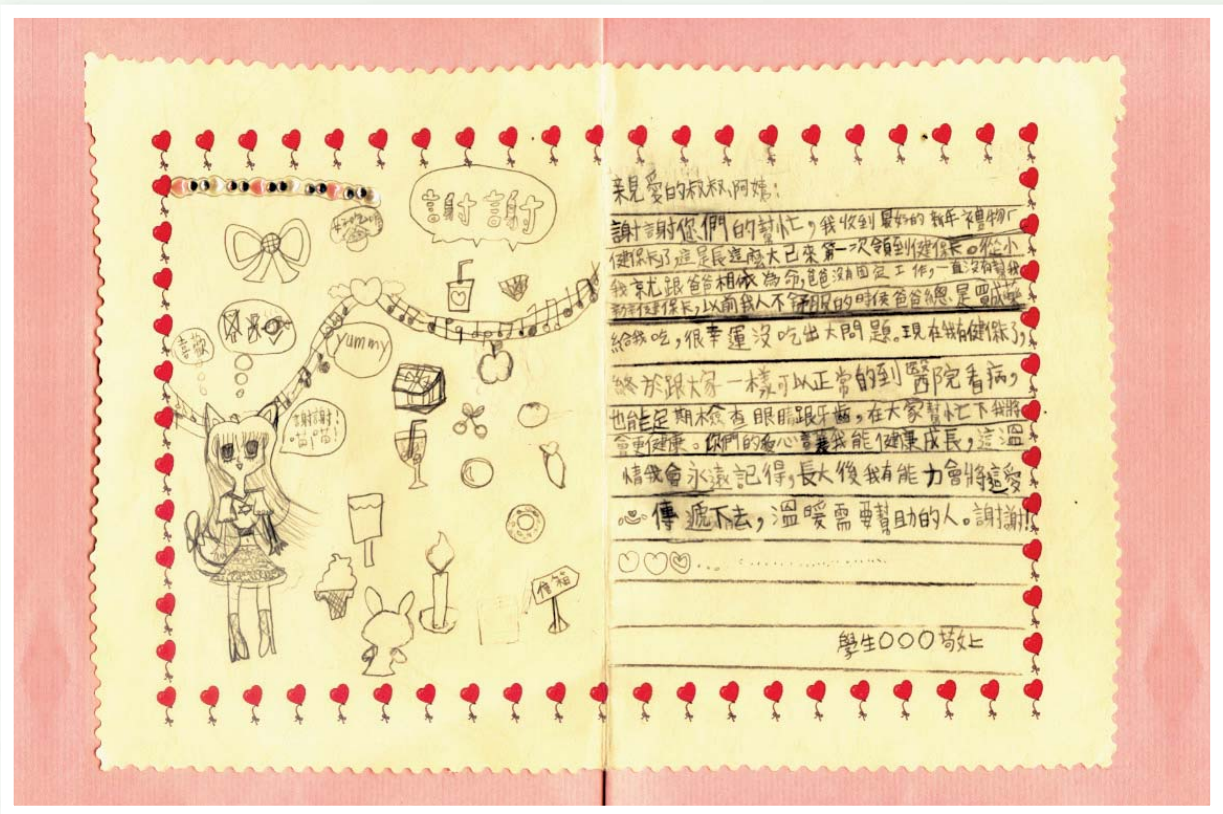 謝謝
yummy
喜歡
謝謝!
喵喵!
信箱
親愛的叔叔、阿姨:
謝謝你們的幫忙,我收到最好的新年禮物「
健保卡」了,這是長這麼大已來第一次領到健保卡。從小
我就跟爸爸相依為命,爸爸沒有固定工作,一直沒有幫我
辦健保卡,以前我人不舒服的時侯爸爸總是買成藥
給我吃,很幸運沒吃出大問題。現在我有健保了,
終於跟大家一樣可以正常的到醫院看病,
也能定期檢查眼睛跟牙齒,在大家幫忙下我將
會更健康。你們的愛心讓我能健康成長,這溫
情我會永遠記得,長大後我有能力會將這愛
心傳遞下去,溫暖需要幫助的人。謝謝!
學生○○○敬上